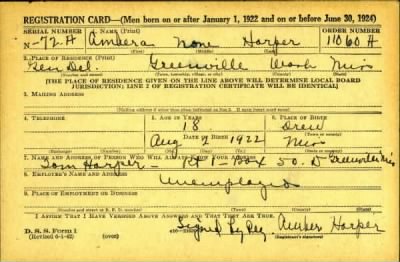 REGISTRATION CARD—(Men born on or after January 1, 1922 and on or before June 30, 1924)
SERIAL NUMBER 1. NAME (Print) ORDER NUMBER
N-72-A Ambers none Harper 11060A
(First) (Middle) (Last)
2. PLACE OF RESIDENCE (Print)
Gen Del. Greenville Wash Miss
(Number and street) (Town, township, village, or city) (County) (State)
[THE PLACE OF RESIDENCE GIVEN ON THE LINE ABOVE WILL DETERMINE LOCAL BOARD
JURISDICTION; LINE 2 OF REGISTRATION CERTIFICATE WILL BE IDENTICAL]
3. MAILING ADDRESS
[Mailing address if other than place indicated on line 2. If same insert word same]
4. TELEPHONE 5. AGE IN YEARS 6. PLACE OF BIRTH
18 Drew
DATE OF BIRTH (Town or county)
Aug 2 1922 Miss
(Exchange) (Number) (Mo.) (Day) (Yr.) (State or country)
7. NAME AND ADDRESS OF PERSON WHO WILL ALWAYS KNOW YOUR ADDRESS
Tom Harper - Rt 1-Box 50. D Greenville Miss
8. EMPLOYER'S NAME AND ADDRESS
Unemployed
9. PLACE OF EMPLOYMENT OR BUSINESS
(Number and street or R. F. D. number) (Town) (County) (State)
I AFFIRM THAT I HAVE VERIFIED ABOVE ANSWERS AND THAT THEY ARE TRUE.
D. S. S. Form 1 Signed by Reg. Amber Harper
(Revised 6-1-42) (over) (Registrant's signature)